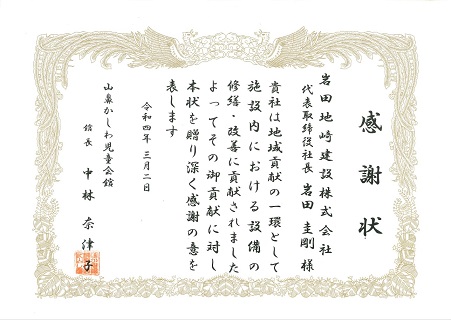 感謝状
岩田地崎建設株式会社
代表取締役社長 岩田 圭剛 様
貴社は地域貢献の一環として
施設内における設備の
修繕・改善に貢献されました
よってその御貢献に対し
本状を贈り深く感謝の意を
表します
令和四年 三月二日
山鼻かしわ児童会館
館長 中林 奈津子